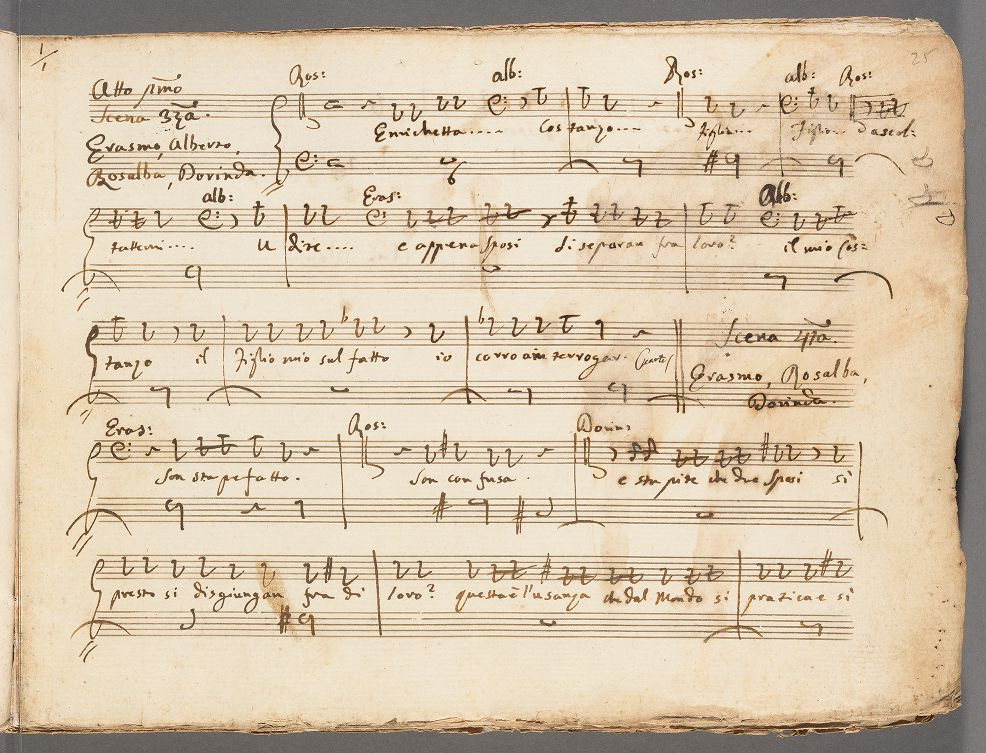 1/1
25
Atto primo
Scena 3za.
Erasmo, Alberto,
Rosalba, Dorinda.
Ros: alb: Ros: alb: Ros:
Enrichetta..... Costanzo.... figlia... Figlio... d'ascol:
alb: Eras: Alb:
tatemi.... Udite.... e appena sposi si separan fra loro? il mio Cos:
tanzo il Figlio mio sul fatto io corro ain terrogar. (parte)
Scena 4ta.
Erasmo, Rosalba,
Dorinda.
Eras: Ros: Dorin:
Son stupefatto. Son confusa. e stupite che due sposi sì
presto si disgiungan fra di loro? questa è l'usanza che dal Mondo si pratica e sì